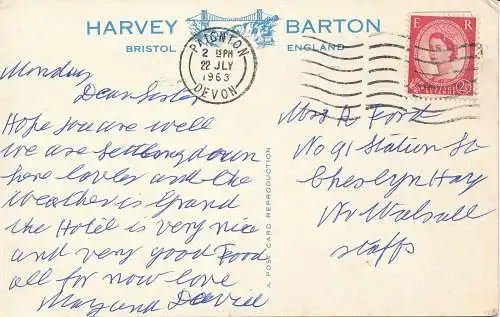 HARVEY BARTON
BRISTOL ENGLAND
PAIGNTON
2 15PM
22 JLY
1963
DEVON
E R
Monday
Dear Sister
Hope you are well
we are settling down
here lovley and the
Weather is Grand
the Hotel is very nice
and very good Food
all for now love
May and David
A POST CARD REPRODUCTION
Mrs A Ford
No 91 Station St
Cheslyn Hay
Nr Walsall
Staffs